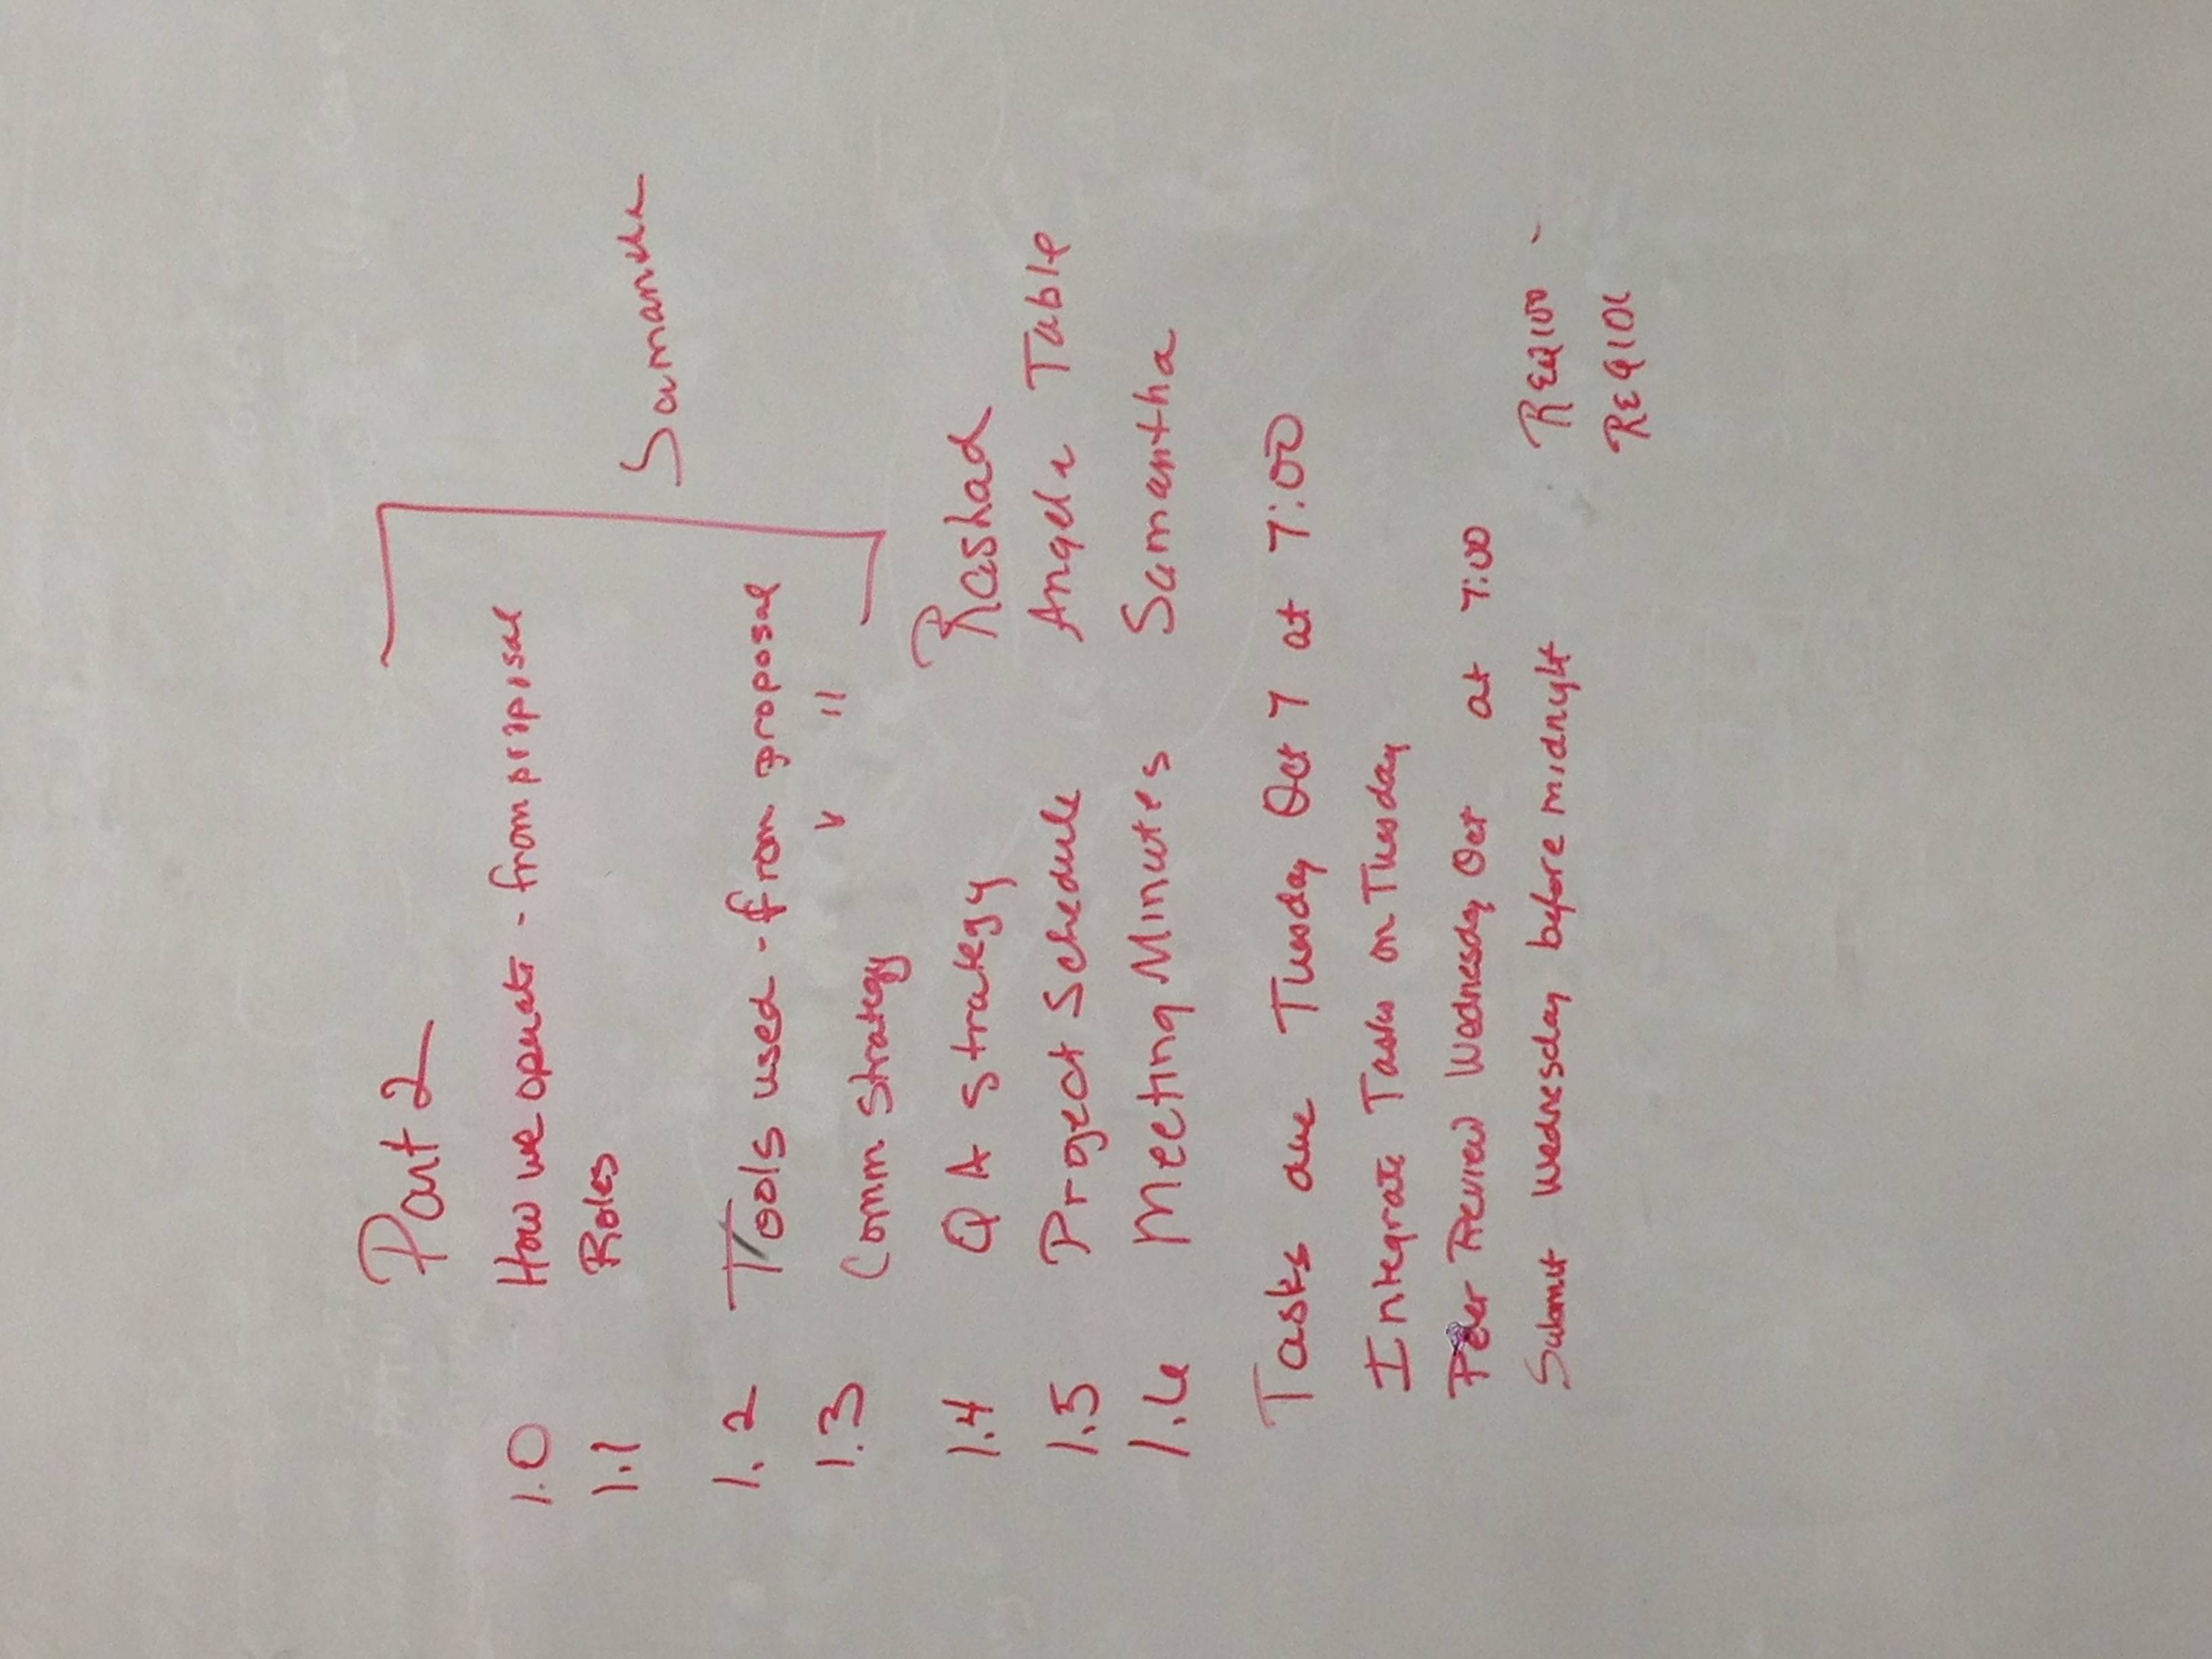 Part 2
1.0 How we operate - from proposal
1.1 Roles
Samantha
1.2 Tools used - from proposal
1.3 Comm Strategy " "
1.4 QA Strategy Rashad
1.5 Project Schedule Angela Table
1.6 Meeting Minutes Samantha
Tasks due Tuesday Oct 7 at 7:00
Integrate Tasks on Tuesday
Peer Review Wednesday Oct at 7:00
Submit Wednesday before midnight
REQ100 -
REQ101